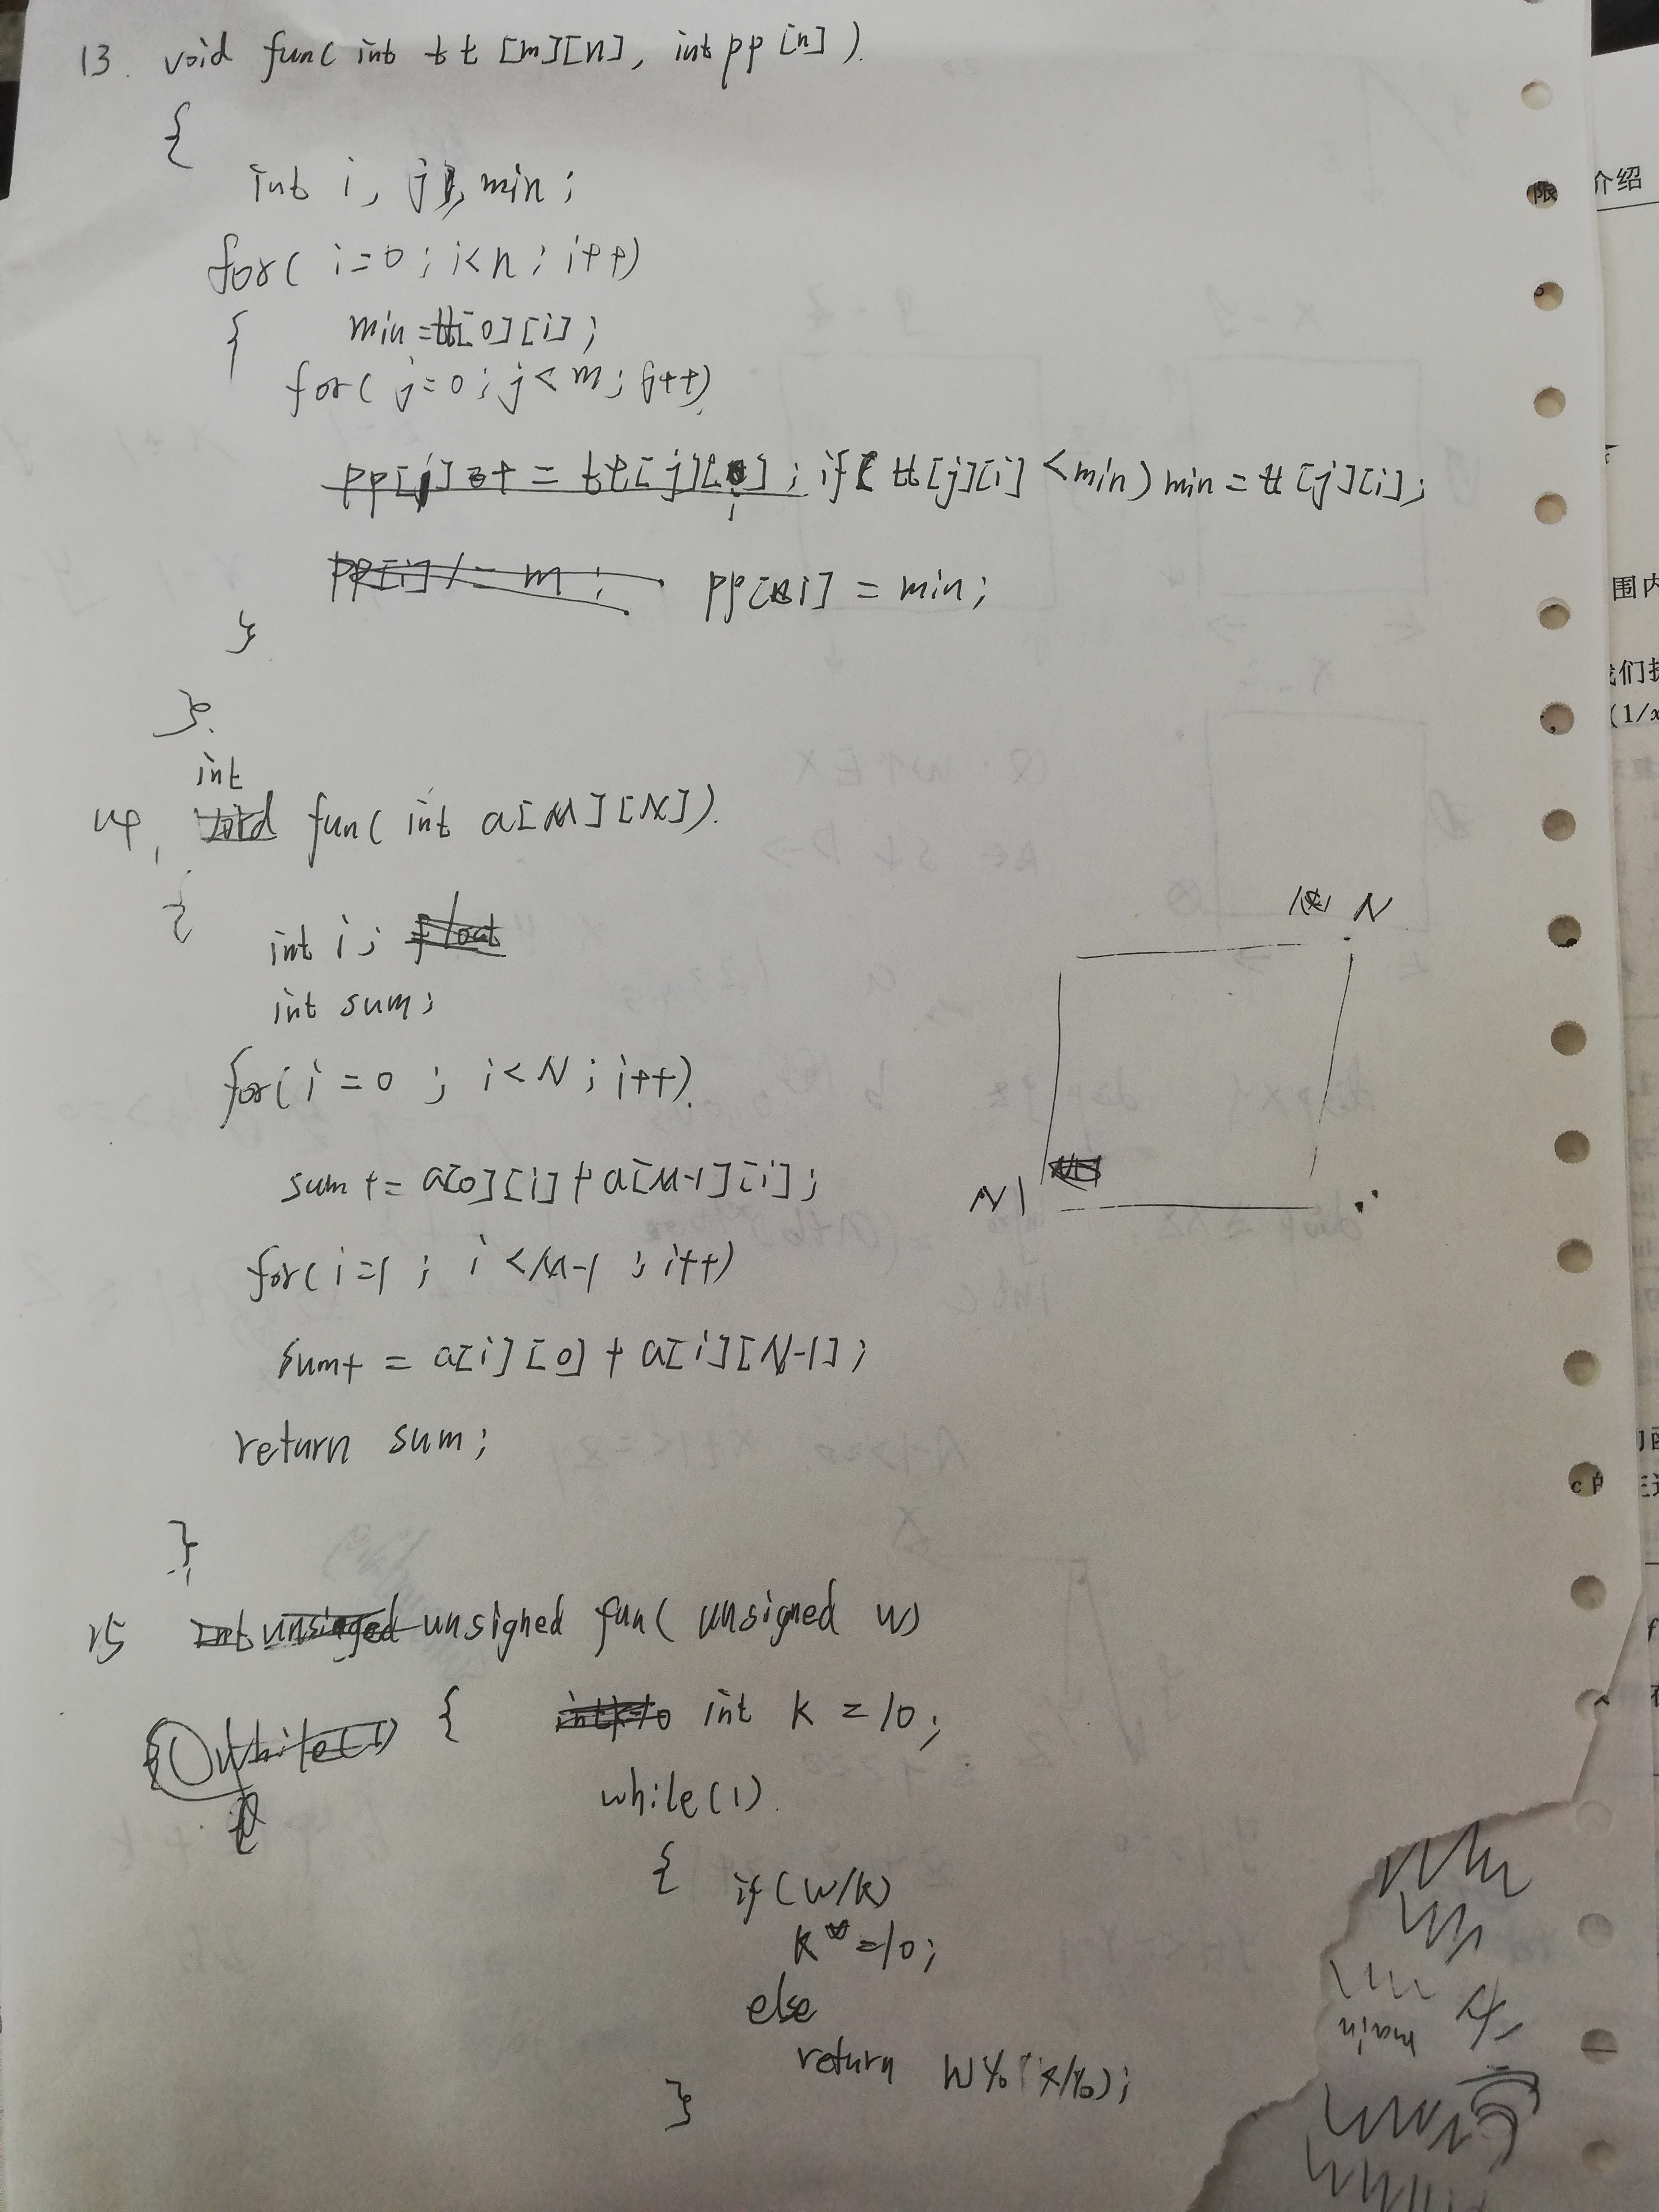 13. void fun( int tt [m][n], int pp [n] ).
{
int i, j, min ;
for( i=0 ; i<n ; i++)
{ min =tt[0][i] ;
for( j=0 ; j<m ; j++)
pp[j] += tt[j][i] ; if( tt[j][i] <min) min = tt[j][i] ;
pp[i] /= m ; pp[i] = min ;
}
}.
int
14, void fun( int a[M][N]).
{
int i ; float
int sum ;
for( i=0 ; i<N ; i++).
sum += a[0][i] + a[M-1][i] ;
for( i=1 ; i <M-1 ; i++)
sum+ = a[i][0] + a[i][N-1] ;
return sum ;
}
N
15 int unsinged unsigned fun( unsigned w)
{ while(1) { int k=10 int k =10 ;
while(1).
{ if( w/k)
k*=10 ;
else
return w%(k/10) ;
}
main
介绍
限
围内
我们
(1/x
c的